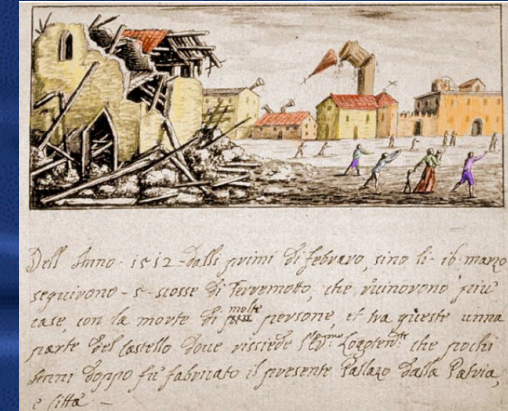 Dell Anno - 1512 - dalli primi di febraro, sino li - 16 - marzo
seguirono - 5 - scosse di Terremotto, che ruinorono più
case, con la morte di molte persone, et tra queste unna
parte del Castello doue rissiede l' Logoten che pochi
Anni doppo fu fabricato il presente Pallazo dalla Patria,
e città -